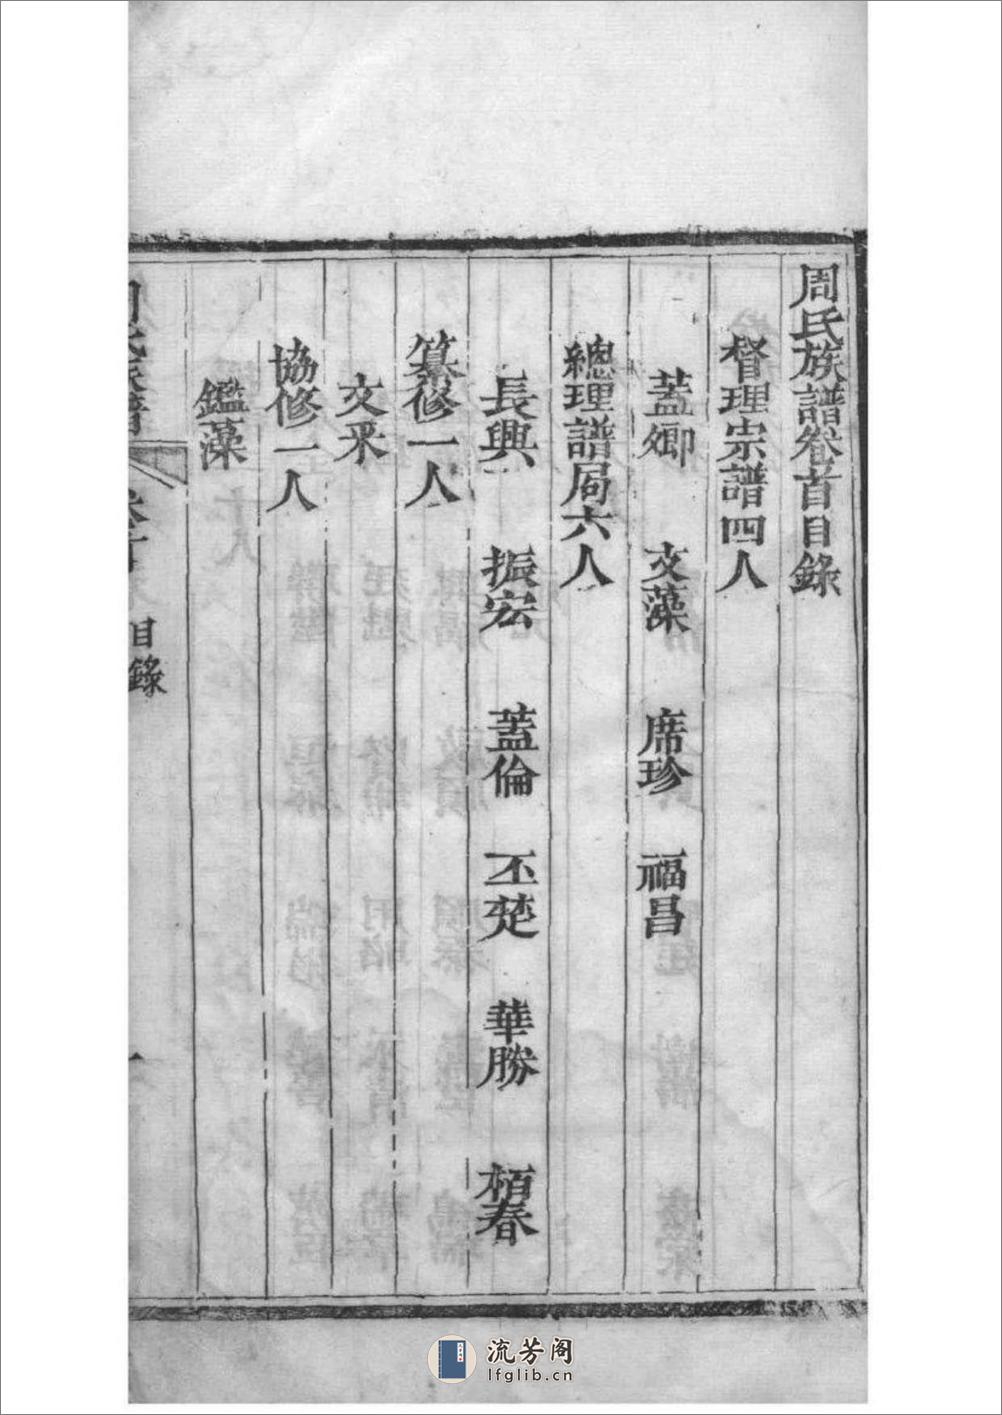 周氏族譜卷首目錄
督理宗譜四人
蓋卿 文藻 席珍 福昌
總理譜局六人
長興 振宏 蓋倫 丕楚 華勝 栢春
纂修一人
文采
協修一人
鑑藻
目錄
一
流芳阁
lfglib.cn